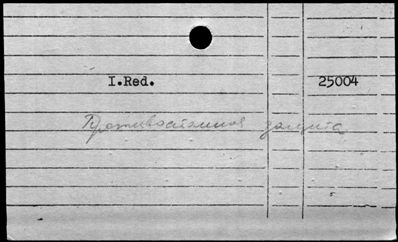 I.Red. 25004
Противоатомная защита